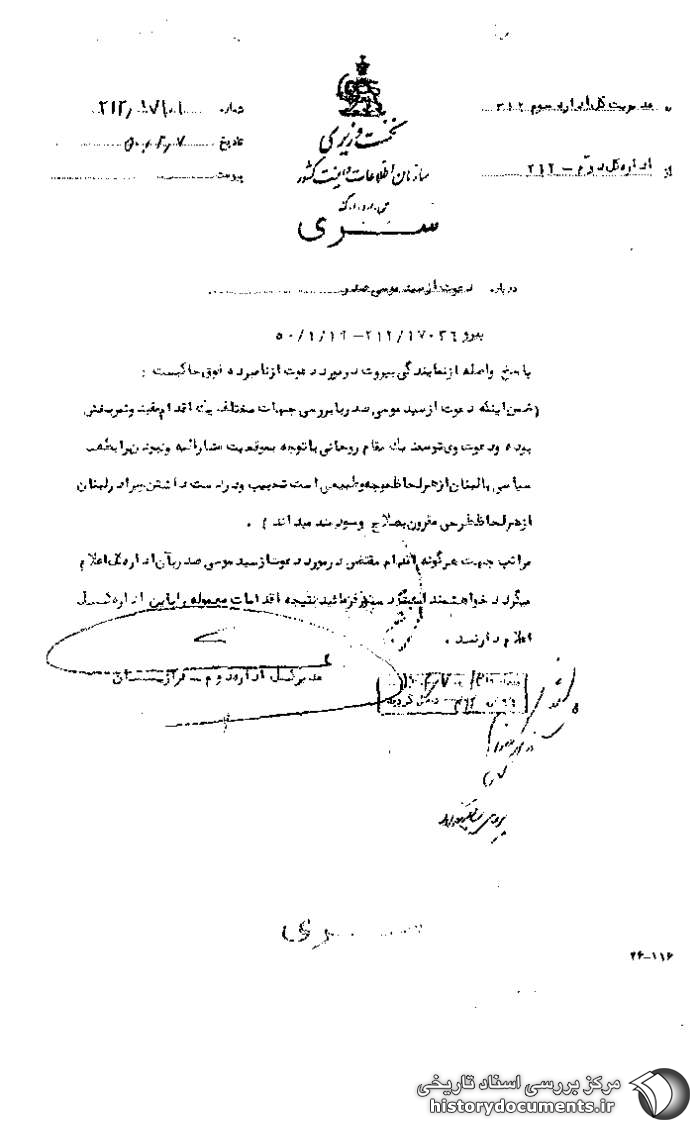 به مدیریت کل اداره سوم ۳۱۲
از اداره کل دوم - ۲۱۲
نخست وزیری
سازمان اطلاعات و امنیت کشور
سری
شماره ۲۱۲/
تاریخ
پیوست
درباره دعوت از سید موسی صدر
پیرو ۲۱۲/۱۷۰۳۶ - ۵۰/۱/۱۹
پاسخ واصله از نمایندگی بیروت در مورد دعوت از نامبرده فوق حاکیست :
(ضمن اینکه دعوت از سید موسی صدر با بررسی جهات مختلف یک اقدام مفید و ثمربخش
بوده و دعوت وی توسط یک مقام روحانی با توجه بموقعیت مشارالیه و نبودن رابطه
سیاسی با لبنان از هر لحاظ موجه و طبیعی است تحبیب و در دست داشتن صدر در لبنان
از هر لحاظ طرحی مقرون بصلاح و سودمند میداند ) .
مراتب جهت هرگونه اقدام مقتضی در مورد دعوت از سید موسی صدر بآن اداره کل اعلام
میگردد خواهشمند است دستور فرمائید نتیجه اقدامات معموله را باین اداره کل
اعلام دارند .
مدیر کل اداره دوم - فرازیان
سری
۲۴-۱۱۶
مرکز بررسی اسناد تاریخی
historydocuments.ir